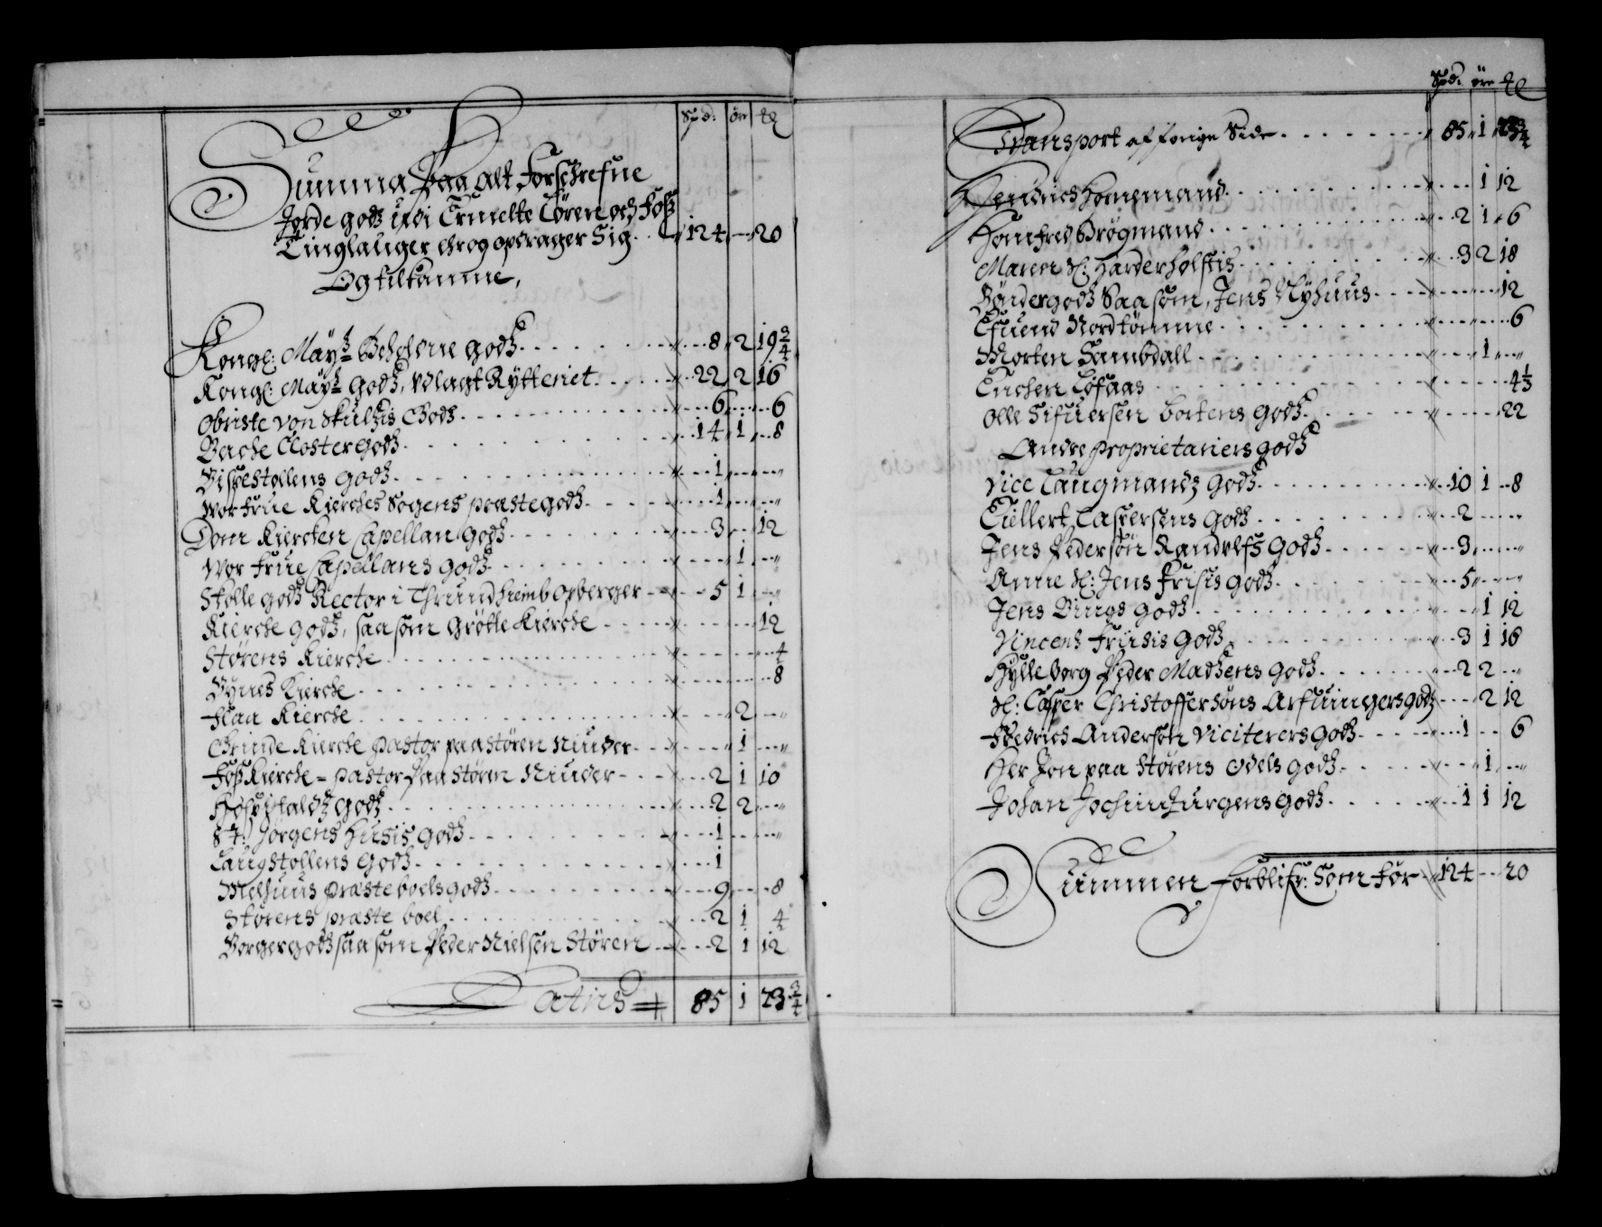 Spd: ör ₰
Summa Paa alt Forschrefne
Jorde godtz udi Ermelte Tören och Foss
Tinglauger ehrog opdrager Sig .. 124 -- 20
Og tilkamme,
Kongl: Maytz Beholdne godtz ...... 8 2 19 3/4
Kongl: Maytz Godtz, Udlagt Rytteriet ..... 22 2 16
Obriste von Skultzis Godtz ...... 6 -- 6
Bache Closter Godtz ...... 14 1 8
Bispestollens Godtz ...... 1
Wor Frue Kierches Sogens præstegodtz ...... 1
Dom Kiercken Capellan Godtz ...... 3 -- 12
Wor Frue Capellans Godtz ...... 1
Skolle godtz Rector i Thrundhiemb opberger -- 5 1
Kierche godtz, saasom Grötte Kierche ---- 12
Störens Kierche ...... 4
Bynes Kierche ...... 8
Flaa Kierche ...... 2
Grinde Kierche pastor paa Stören Niuder --- 1
Foss Kierche - pastor Paa Stören Niuder --- 2 1 10
Hospitaldtz Godtz ...... 2 2
St: Jorgens Husis Godtz ...... 1
Laugstollens Godtz ...... 1
Melhuus Præsteboels godtz ...... 9 -- 8
Störens præste boel ...... 2 1 4
Borger godtz saasom Peder Nielsen Stören -- 2 1 12
Latris 85 1 23 3/4
Spd: ör ₰
Transport af forige Side ...... 85 1 23 3/4
Hendrich Hornemand ...... 1 12
Homfred Brögmand ...... 2 1 6
Maren Sl: Harderholftis ...... 3 2 18
Böndergodtz Saasom, Jens Nyhuus ---- 12
Efuend Nordtömme ...... 6
Morten Sambdall ...... 1
Enchen Löfaas ...... 4 1/3
Olle Sifuersen Bortens godtz ...... 22
Andre proprietariers godtz
Vice Laugmandtz Godtz ...... 10 1 8
Eillert Caspersens Godtz ...... 2
Jens Pedersön Randulfs Godtz ...... 3
Anne Sl: Jens Frisis Godtz ...... 5
Jens Bings Godtz ...... 1 12
Vincens Friisis Godtz ...... 3 1 18
Hylleborg Peder Madtzens Godtz ...... 2 2
Sl: Casper Christoffersöns Arfuingers godtz --- 2 12
Fredrich Andersön Viciterers Godtz ---- 1 -- 6
Her Jon paa Störens Odels godtz ...... 1
Johan Jochim Jurgens Godtz ...... 1 1 12
Summen Forblifr: Som För 124 -- 20